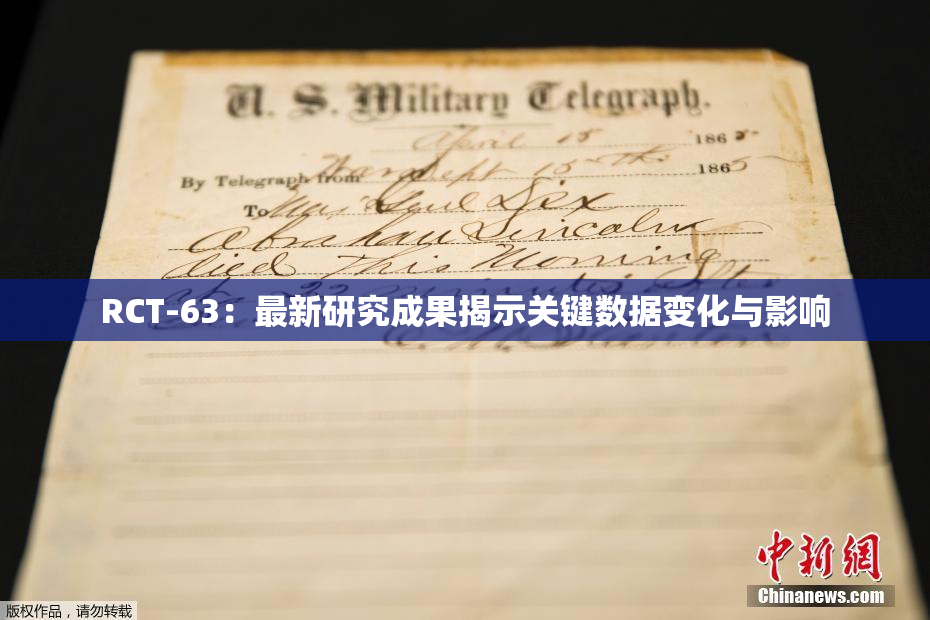 U. S. Military Telegraph.
April 15 1865
By Telegraph from War Dept 15th 1865
To Maj Genl Dix
Abraham Lincoln
died This Morning
22 minutes after
RCT-63：最新研究成果揭示关键数据变化与影响
中新网
Chinanews.com
版权作品，请勿转载